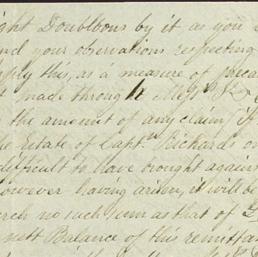 ight Doubloons by it as you
and your observations respecting
pply this, as a measure of
t made through Messrs
the amount of any claim if
the Estate of Captn Richards on
difficult to have brought against
however having arisen, it will be
rch no such sum as that of
nett Balance of this remittan